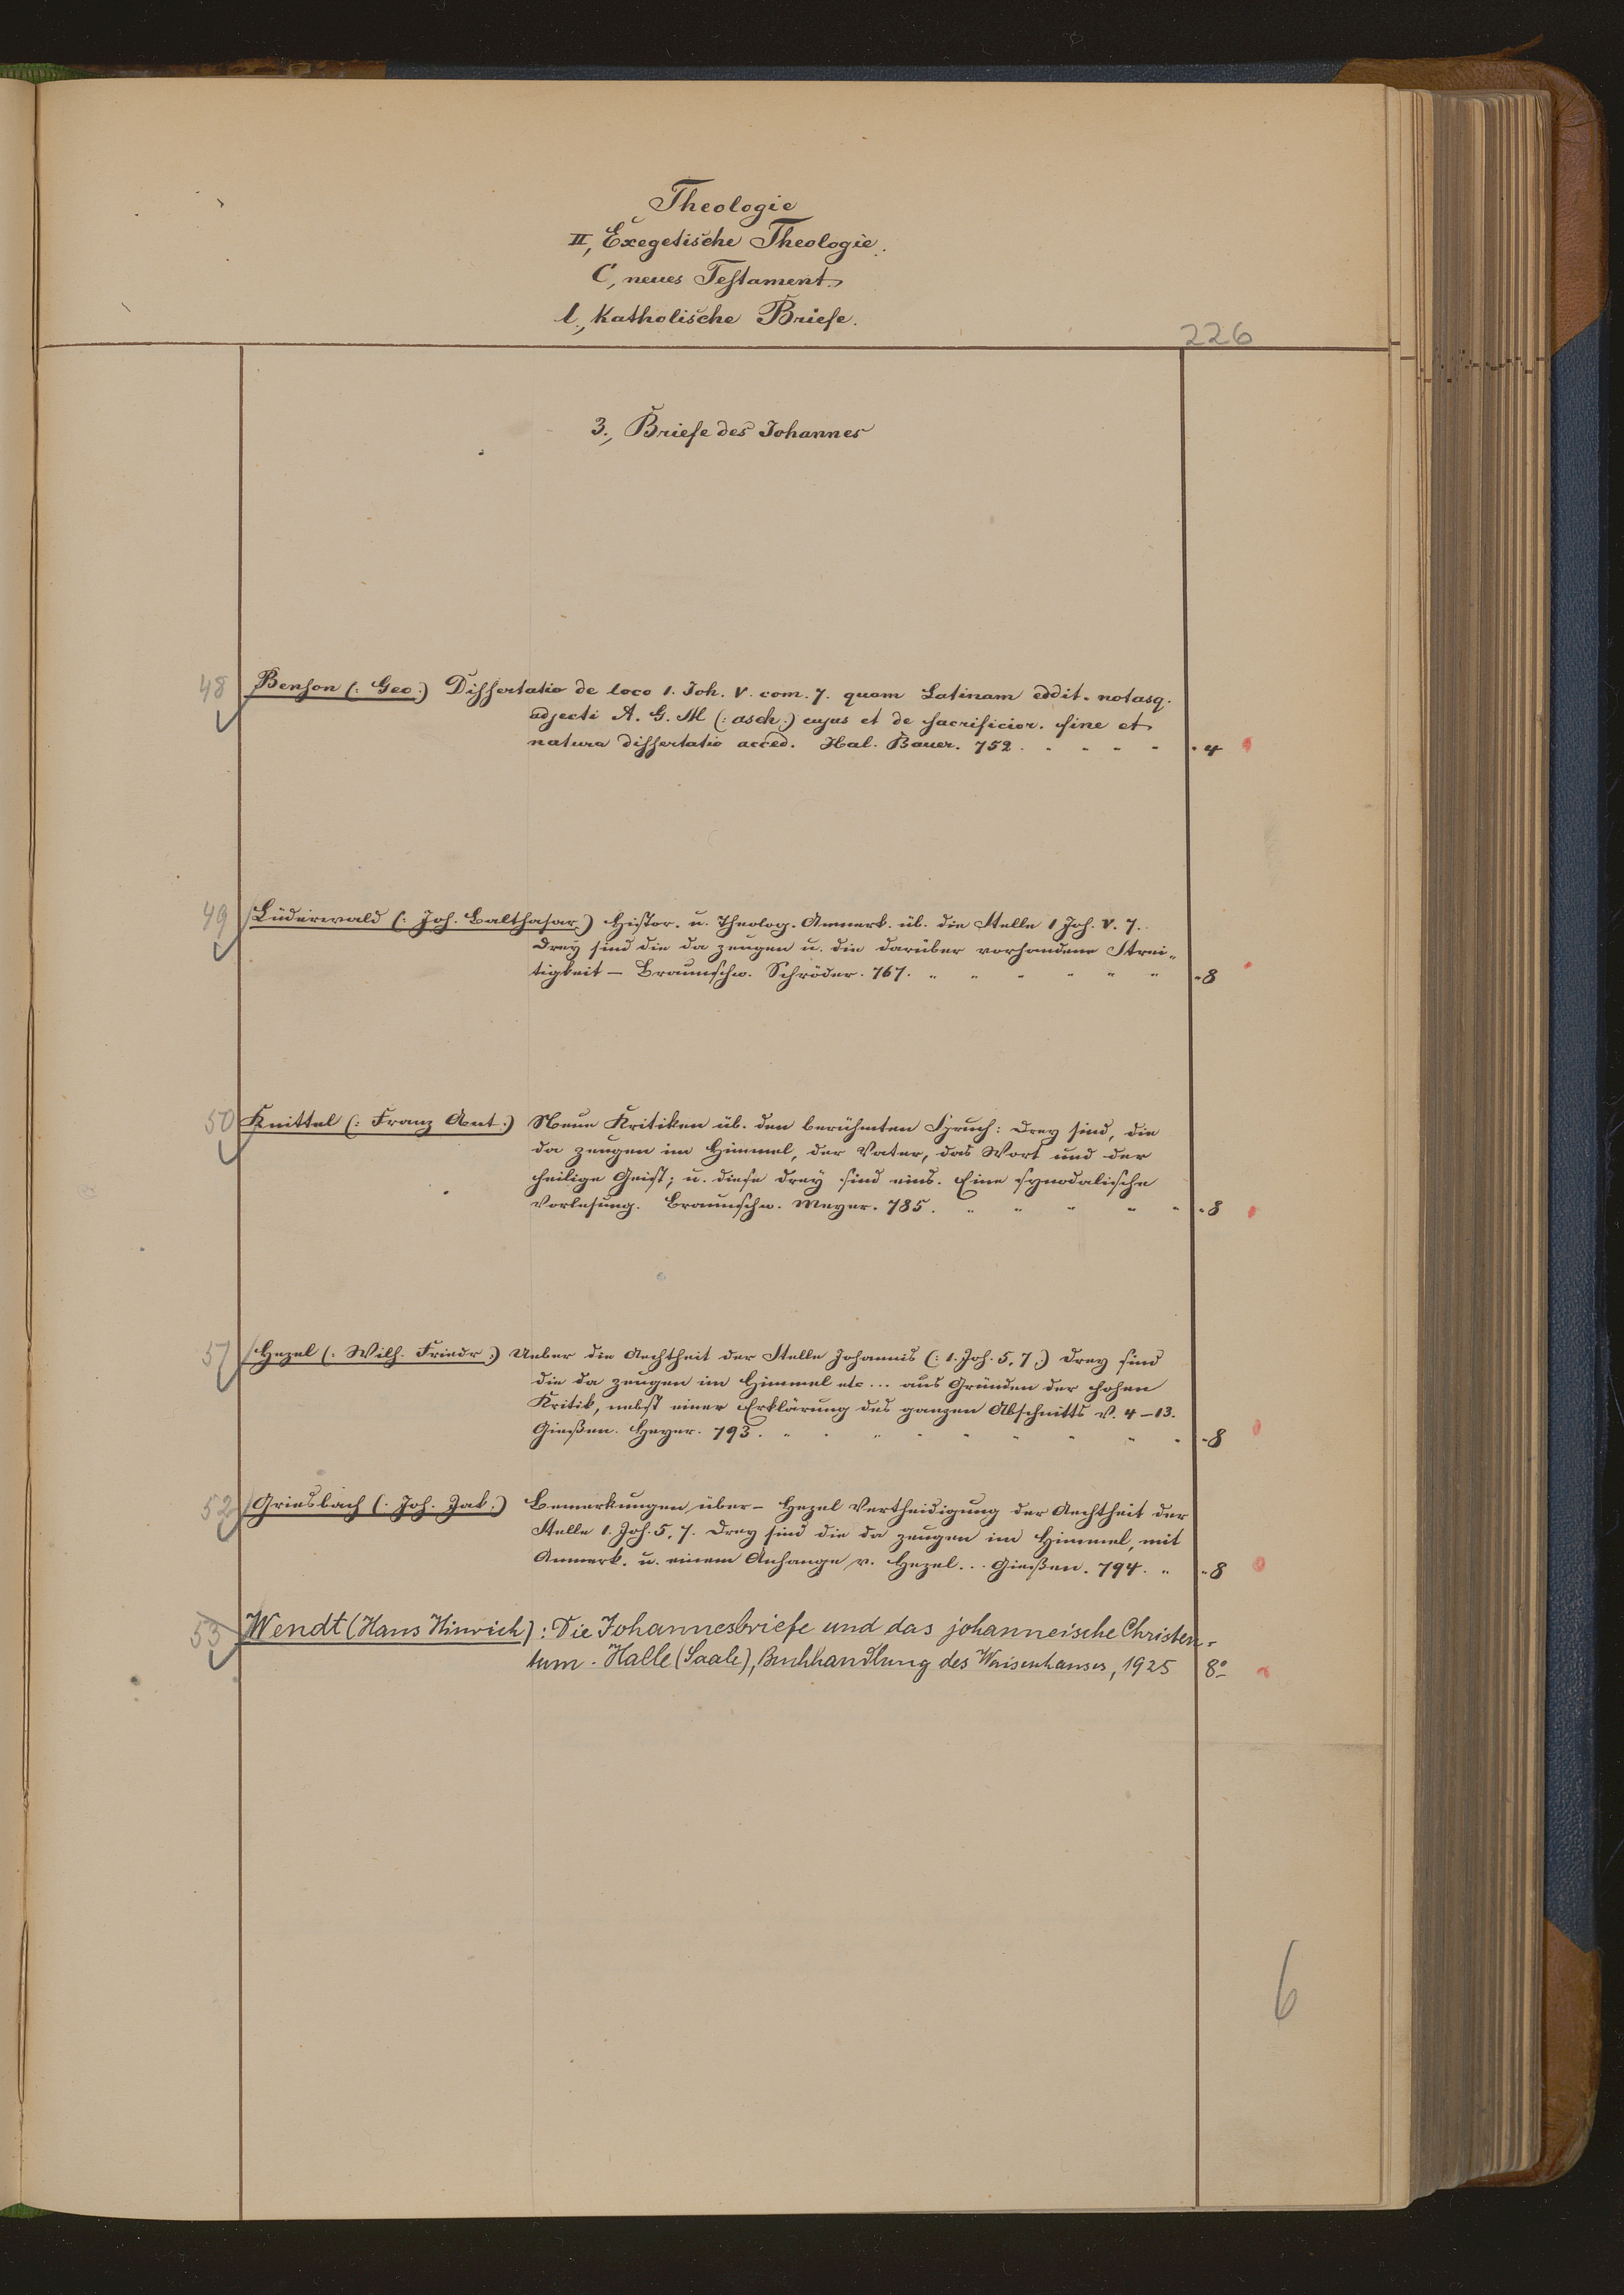 Theologie
II, Exegetische Theologie.
C, neues Testament
l., Katholische Briefe.
226
3., Briefe des Johannes
48 Benson (: Geo :) Dissertatio de loco 1. Joh. V. com. 7. quam Latinam eddit. notasq.
adjecti A. G. M (: asch :) cujus et de sacrificior. fine et
natura dissertatio acced. Hal. Bauer. 752. " 4
49 Lüderwald (: Joh. Balthasar :) Histor. u. Theolog. Anmerk. üb. die Stelle 1 Joh. V. 7.
Drey sind die da zeugen u. die darüber vorhandene Strei-
tigkeit — Braunschw. Schröder. 767. " 8
50 Knittel (: Franz Ant :) Neue Kritiken üb. den berühmten Spruch: Drey sind, die
da zeugen im Himmel, der Vater, das Wort und der
heilige Geist; u. diese drey sind eins. Eine synodalische
Vorlesung. Braunschw. Meyer. 785. " 8
51 Hezel (: Wilh. Friedr :) Ueber die Aechtheit der Stelle Johannis (: 1. Joh. 5, 7 :) Drey sind
die da zeugen im Himmel etc... aus Gründen der hohen
Kritik, nebst einer Erklärung des ganzen Abschnitts V. 4–13.
Gießen. Heyer. 793. " 8
52 Griesbach (: Joh. Jak :) Bemerkungen über – Hezel Vertheidigung der Aechtheit der
Stelle 1. Joh. 5, 7. Drey sind die da zeugen im Himmel, mit
Anmerk. u. einem Anhange v. Hezel... Gießen. 794. " 8
53 Wendt (Hans Hinrich): Die Johannesbriefe und das johanneische Christen-
tum. Halle (Saale), Buchhandlung des Waisenhauses, 1925 8°
6